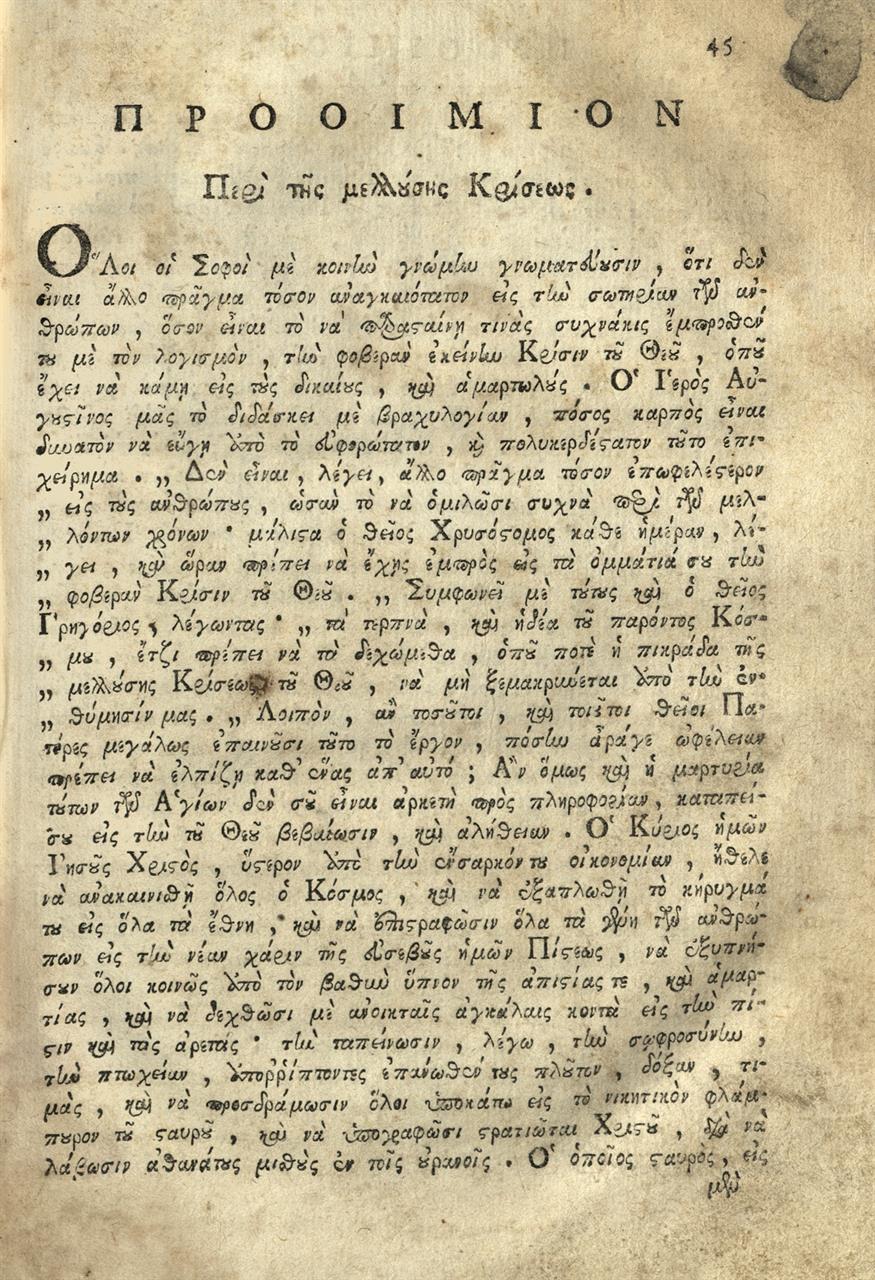 45
ΠΡΟΟΙΜΙΟΝ
Περὶ τῆς μελλούσης Κρίσεως.
Ὅλοι οἱ Σοφοὶ μὲ κοινὴν γνώμην γνωματεύουσιν, ὅτι δὲν
εἶναι ἄλλο πρᾶγμα τόσον ἀναγκαιότατον εἰς τὴν σωτηρίαν τῶν ἀν-
θρώπων, ὅσον εἶναι τὸ νὰ παρασταίνῃ τινὰς συχνάκις ἔμπροσθέν
του μὲ τὸν λογισμὸν, τὴν φοβερὰν ἐκείνην Κρίσιν τοῦ Θεοῦ, ὁποῦ
ἔχει νὰ κάμῃ εἰς τοὺς δικαίους, καὶ ἁμαρτωλούς. Ὁ Ἱερὸς Αὐ-
γουστῖνος μᾶς τὸ διδάσκει μὲ βραχυλογίαν, πόσος καρπὸς εἶναι
δυνατὸν νὰ εὔγῃ ἀπὸ τὸ εὐφορώτατον, καὶ πολυκερδέστατον τοῦτο ἐπι-
χείρημα. „ Δὲν εἶναι, λέγει, ἄλλο πρᾶγμα τόσον ἐπωφελέστερον
„ εἰς τοὺς ἀνθρώπους, ὡσὰν τὸ νὰ ὁμιλῶσι συχνὰ περὶ τῶν μελ-
„ λόντων χρόνων· μάλιστα ὁ θεῖος Χρυσόστομος κάθε ἡμέραν, λέ-
„ γει, καὶ ὥραν πρέπει νὰ ἔχῃς ἐμπρὸς εἰς τὰ ὀμμάτιά σου τὴν
„ φοβερὰν Κρίσιν τοῦ Θεοῦ. „ Συμφωνεῖ μὲ τούτους καὶ ὁ θεῖος
Γρηγόριος, λέγωντας· „ τὰ τερπνὰ, καὶ ἡδέα τοῦ παρόντος Κόσ-
„ μου, ἔτζι πρέπει νὰ τὰ δεχώμεθα, ὁποῦ ποτὲ ἡ πικράδα τῆς
„ μελλούσης Κρίσεως τοῦ Θεοῦ, νὰ μὴ ξεμακρύνεται ἀπὸ τὴν ἐν-
„ θύμησίν μας. „ Λοιπὸν, ἂν τοσοῦτοι, καὶ τοιοῦτοι θεῖοι Πα-
τέρες μεγάλως ἐπαινοῦσι τοῦτο τὸ ἔργον, πόσην ἆράγε ὠφέλειαν
πρέπει νὰ ἐλπίζῃ καθ' ἕνας ἀπ' αὐτό; Ἂν ὅμως καὶ ἡ μαρτυρία
τούτων τῶν Ἁγίων δὲν σοῦ εἶναι ἀρκετὴ πρὸς πληροφορίαν, καταπεί-
σου εἰς τὴν τοῦ Θεοῦ βεβαίωσιν, καὶ ἀλήθειαν. Ὁ Κύριος ἡμῶν
Ἰησοῦς Χριστὸς, ὕστερον ἀπὸ τὴν ἔνσαρκόν του οἰκονομίαν, ἤθελε
νὰ ἀνακαινισθῇ ὅλος ὁ Κόσμος, καὶ νὰ ἐξαπλωθῇ τὸ κήρυγμά
του εἰς ὅλα τὰ ἔθνη, καὶ νὰ ἐπιστραφῶσιν ὅλα τὰ γένη τῶν ἀνθρώ-
πων εἰς τὴν νέαν χάριν τῆς εὐσεβοῦς ἡμῶν Πίστεως, νὰ ἐξυπνή-
σουν ὅλοι κοινῶς ἀπὸ τὸν βαθὺν ὕπνον τῆς ἀπιστίας τε, καὶ ἁμαρ-
τίας, καὶ νὰ δεχθῶσι μὲ ἀνοικταῖς ἀγκάλαις κοντὰ εἰς τὴν πί-
στιν καὶ τὰς ἀρετάς· τὴν ταπείνωσιν, λέγω, τὴν σωφροσύνην,
τὴν πτωχείαν, ἀποῤῥίπτοντες ἐπάνωθέν τους πλοῦτον, δόξαν, τι-
μάς, καὶ νὰ προσδράμωσιν ὅλοι ὑποκάτω εἰς τὸ νικητικὸν φλάμ-
πουρον τοῦ σταυροῦ, καὶ νὰ ὑπογραφῶσι στρατιῶται Χριστοῦ, διὰ νὰ
λάβωσιν ἀθανάτους μισθοὺς ἐν τοῖς οὐρανοῖς. Ὁ ὁποῖος σταυρὸς, εἰς
μὲν